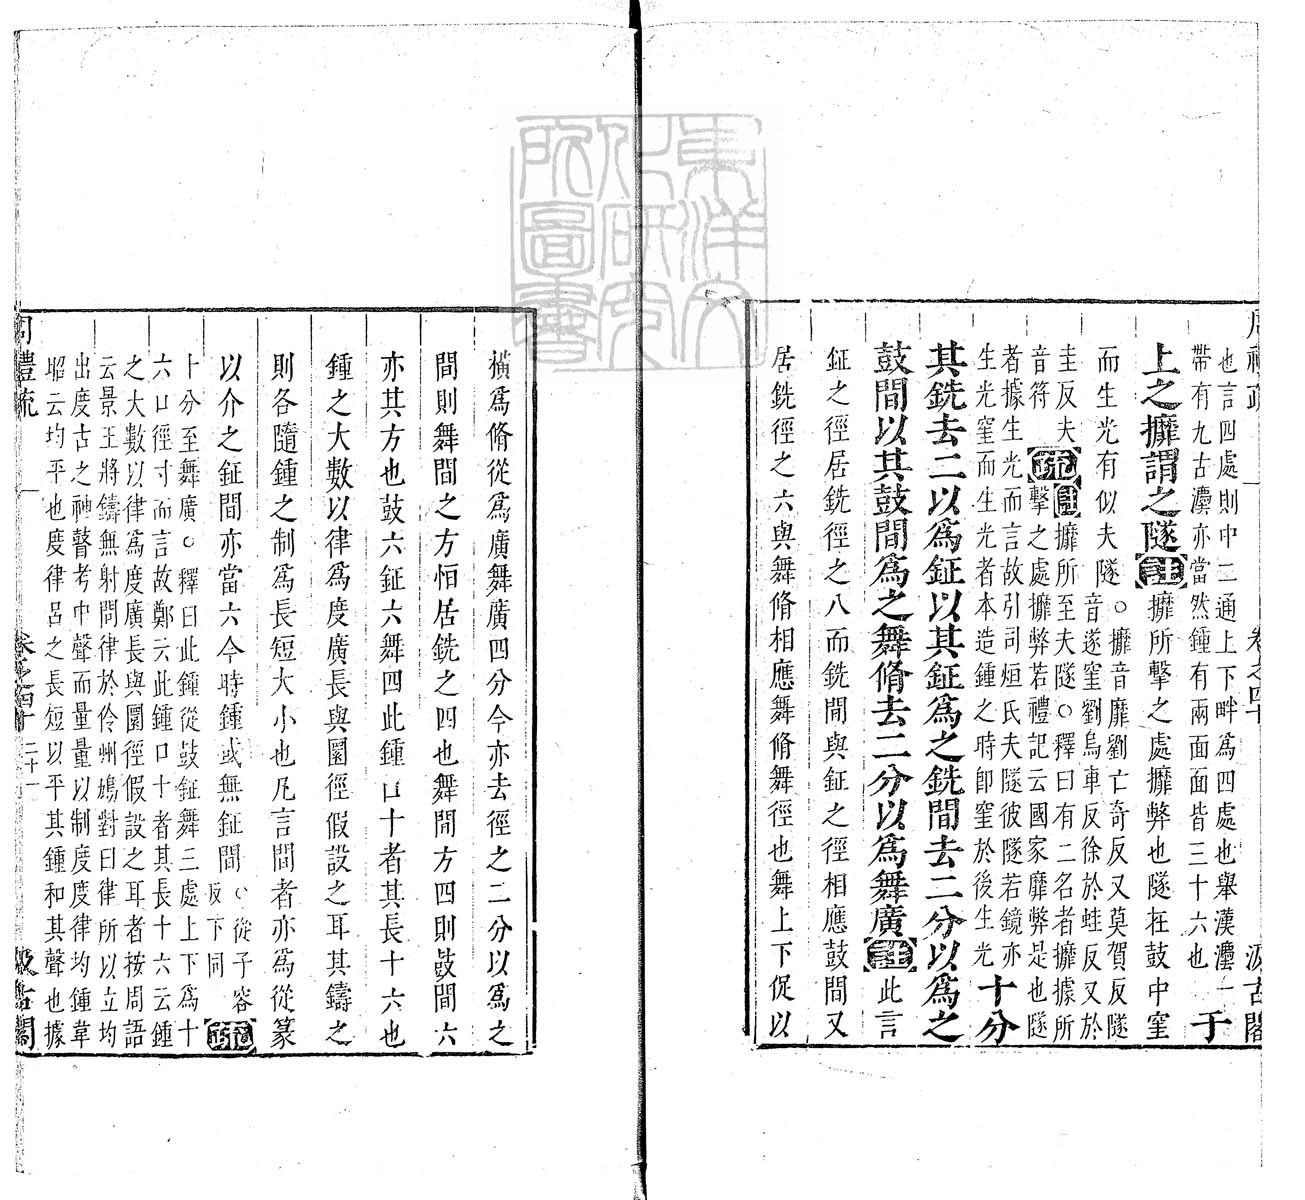 也言四處則中二通上下畔爲四處也舉漢灋一
帶有九古灋亦當然鍾有兩面面皆三十六也
于
上之㩢謂之隧註㩢所擊之處㩢弊也隧在鼓中窐
而生光有似夫隧
○㩢音靡劉亡奇反又莫賀反隧
音遂窐劉烏車反徐於蛙反又於
圭反夫
音符
疏註㩢所至夫隧○釋曰有二名者㩢據所
擊之處㩢弊若禮記云國家靡弊是也隧
者據生光而言故引司烜氏夫隧彼隧若鏡亦
生光窐而生光者本造鍾之時卽窐於後生光
十分
其銑去二以爲鉦以其鉦爲之銑間去二分以爲之
鼓間以其鼓間爲之舞脩去二分以爲舞廣註此言
鉦之徑居銑徑之八而銑間與鉦之徑相應鼓間又
居銑徑之六與舞脩相應舞脩舞徑也舞上下促以
橫爲脩從爲廣舞廣四分今亦去徑之二分以爲之
間則舞間之方恒居銑之四也舞間方四則鼓間六
亦其方也鼓六鉦六舞四此鍾口十者其長十六也
鍾之大數以律爲度廣長與圜徑假設之耳其鑄之
則各隨鍾之制爲長短大小也凡言間者亦爲從篆
以介之鉦間亦當六今時鍾或無鉦間
○從子容
反下同
疏
十分至舞廣○釋曰此鍾從鼓鉦舞三處上下爲十
六口徑寸而言故鄭云此鍾口十者其長十六云鍾
之大數以律爲度廣長與圜徑假設之耳者按周語
云景王將鑄無射問律於伶州鳩對曰律所以立均
出度古之神瞽考中聲而量量以制度度律均鍾韋
昭云均平也度律呂之長短以平其鍾和其聲也據
周禮疏
卷之四十
二十一
汲古閣